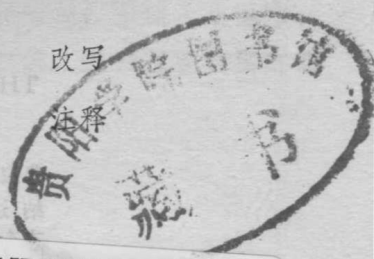 改写
注释
贵阳学院图书馆
藏书